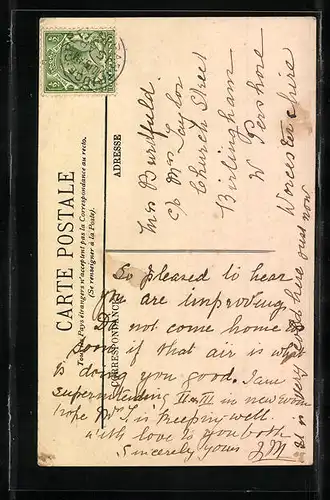 CARTE POSTALE
Tous les Pays étrangers n'acceptent pas la Correspondance au recto.
(Se renseigner à la Poste).
CORRESPONDANCE
ADRESSE
Mrs
c/o Mrs Taylor
Church Street
Birlingham
Nr Pershore
Worcestershire
So pleased to hear
you are improving
Do not come home to
soon if that air is what
is doing you good. I am
superintending II & III in new room
hope Mr T. is keeping well.
with love to you both
Sincerely yours J.M.
It is very good here just now